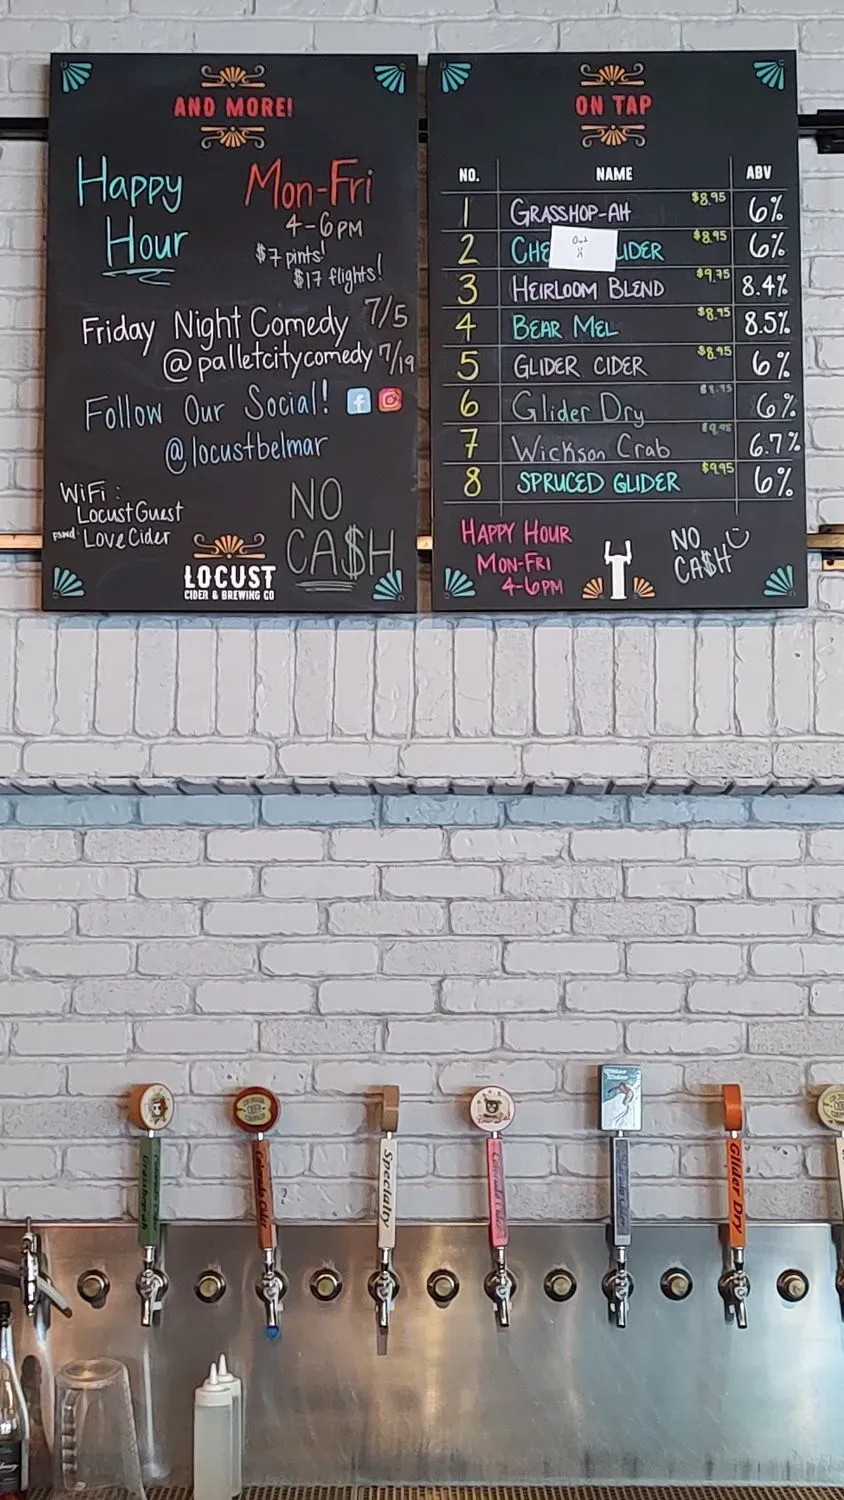 AND MORE!
Happy Hour
Mon-Fri
4-6PM
$7 pints!
$17 flights!
Friday Night Comedy 7/5
@palletcitycomedy 7/19
Follow Our Social!
@locustbelmar
WiFi:
LocustGuest
LoveCider
NO
CA$H
LOCUST
CIDER & BREWING CO
ON TAP
NO. NAME ABV
1 GRASSHOP-AH $8.95 6%
2 CHE LIDER $8.95 6%
Out
3 HEIRLOOM BLEND $9.75 8.4%
4 BEAR MEL $8.95 8.5%
5 GLIDER CIDER $8.95 6%
6 Glider Dry 6%
7 Wickson Crab 6.7%
8 SPRUCED GLIDER $9.95 6%
HAPPY HOUR
MON-FRI
4-6PM
NO
CA$H
Grasshop-ah
Colorado Cider
Specialty
Colorado Cider
Glider Cider
Glider Dry